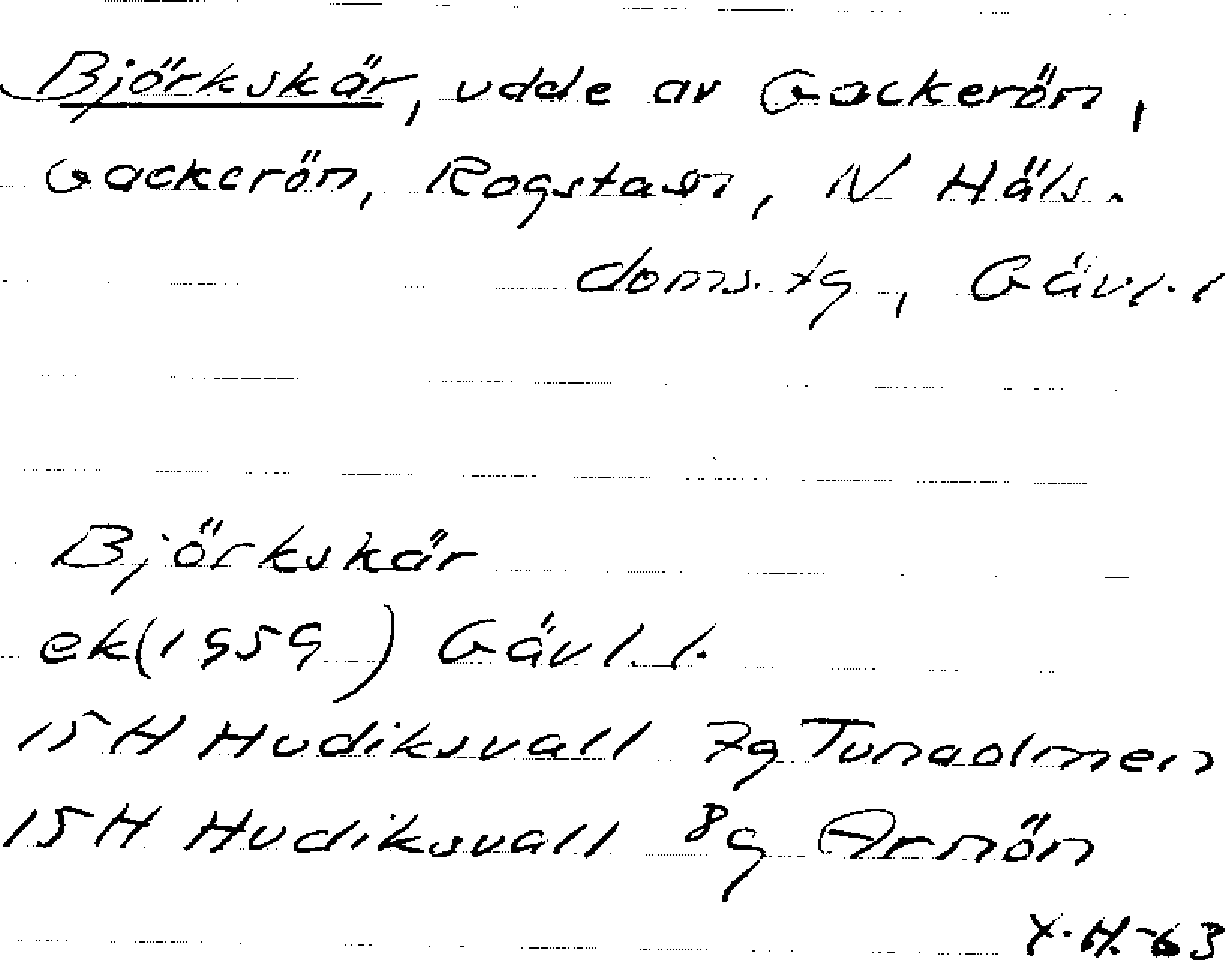 Björkskär, udde av Gackerön,
Gackerön, Rogsta sn, N Häls.
doms.tg, Gävl.l
Björkskär
ek(1959) Gävl.l.
15H Hudiksvall 7g Tunaolmen
15H Hudiksvall 8g Arnön
Y.H.-63